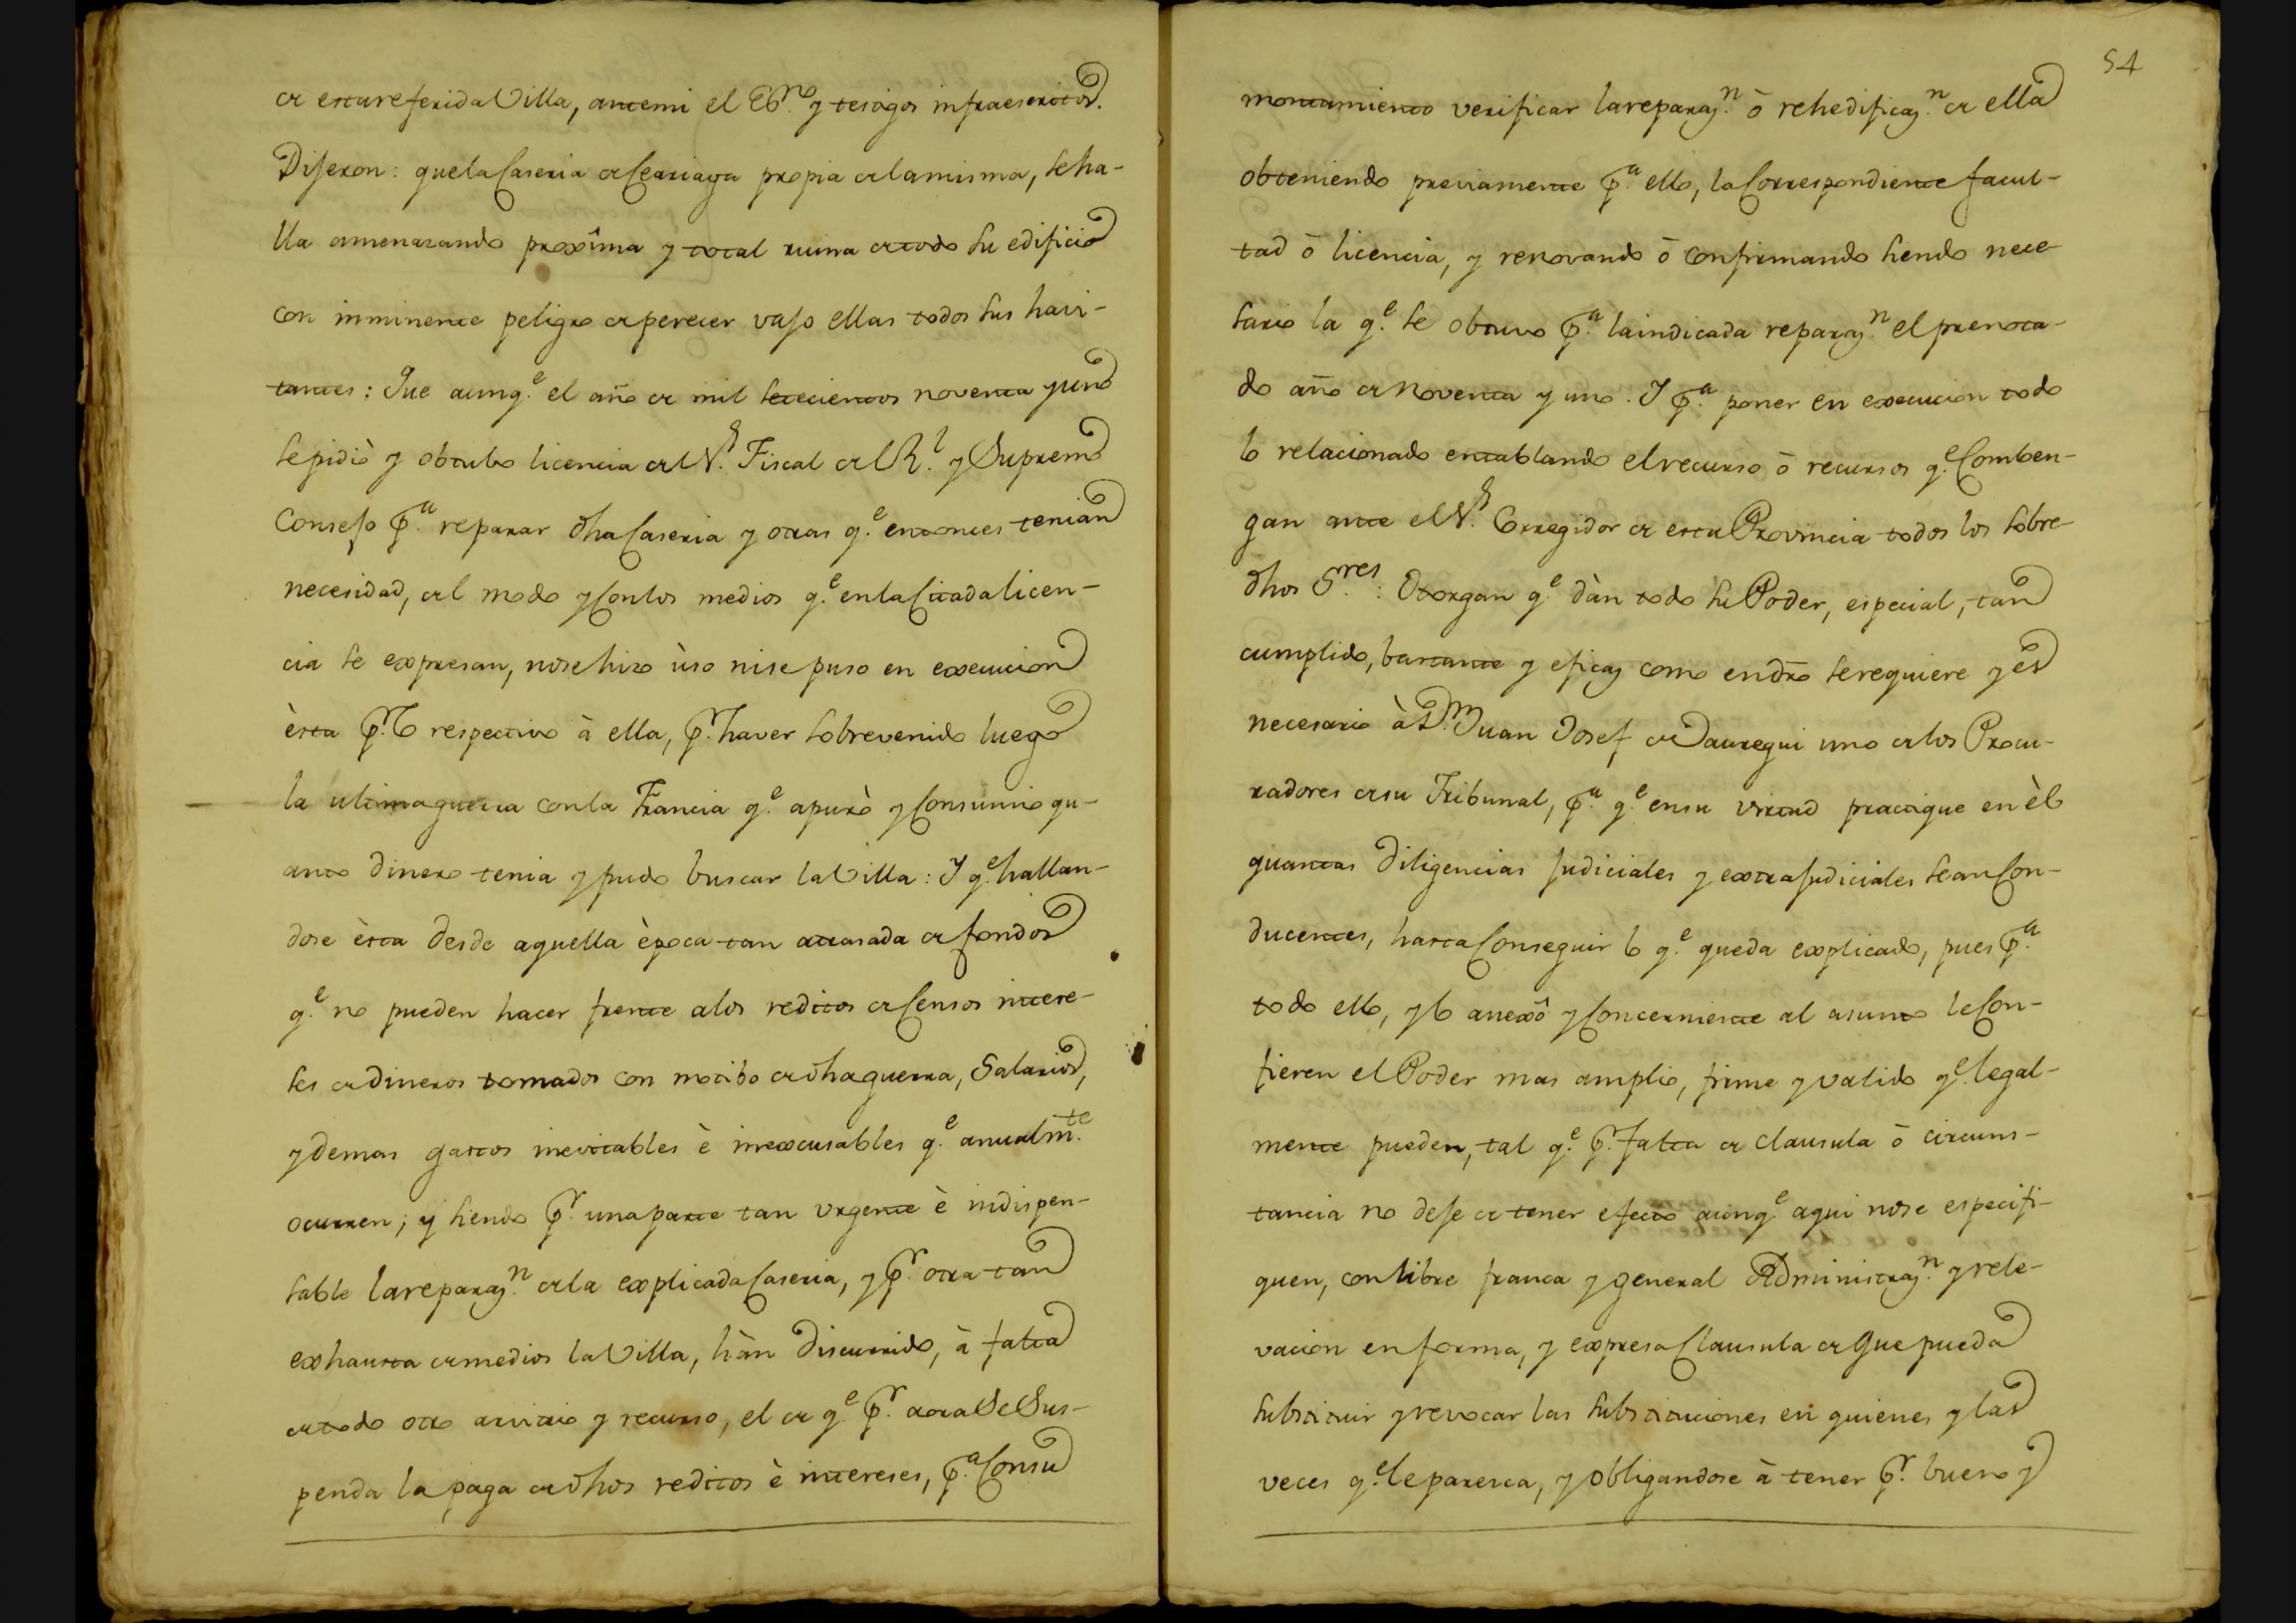 de esta referida Villa, ante mi el Es.no y testigos infraescritos.
Dijeron: que la Caseria de Leariaga propia de la misma, se ha-
lla amenazando proxîma y total ruina de todo su edificio
con inminente peligro de perecer vajo ellas todos sus havi-
tantes: Que aunq.e el año de mil setecientos noventa y uno
se pidiò y obtubo licencia del S.r Fiscal del R.l y Supremo
Consejo p.a reparar dha Caseria y otras q.e entonces tenian
necesidad, del modo y con los medios q.e en la Citada licen-
cia se expresan, no se hizo ùso ni se puso en execucion
èsta p.r lo respectivo à ella, p.r haver sobrevenido luego
la ultima guerra con la Francia q.e apurò y Consumio qu-
anto dinero tenia y pudo buscar la Villa: Y q.e hallan-
dose èsta desde aquella època tan atrasada de fondos
q.e no pueden hacer frente a los reditos de Censos intere-
ses de dineros tomados con motibo de dha guerra, Salarios,
y demas gastos inevitables è inexcusables q.e anualm.te
ocurren; y siendo p.r una parte tan urgente è indispen-
sable la reparaz.n de la explicada Caseria, y p.r otra tan
exhausta de medios la Villa, hàn discurrido, à falta
de todo otro arvitrio y recurso, el de q.e p.r aora Se Sus-
penda la paga de dhos reditos è intereses, p.a Con su
54
montamiento verificar la reparaz.n ò rehedificaz.n de ella
obteniendo previamente p.a ello, la Correspondiente facul-
tad ò licencia, y renovando ò confirmando siendo nece
sario la q.e se obtuvo p.a la indicada reparaz.n el prenota-
do año de noventa y uno. Y p.a poner en execucion todo
lo relacionado entablando el recurso ò recursos q.e Comben-
gan ante el S.r Corregidor de esta Provincia todos los sobre-
dhos S.res: Otorgan q.e dàn todo su Poder, especial, tan
cumplido, bastante y eficaz como en dro se requiere y es
necesario à D.n Juan Josef de Jauregui uno de los Procu-
radores de su Tribunal, p.a q.e en su virtud practique en èl
quantas diligencias judiciales y extrajudiciales sean Con-
ducentes, hasta Conseguir lo q.e queda explicado, pues p.a
todo ello, y lo anexô y Concerniente al asunto le Con-
fieren el Poder mas amplio, firme y valido q.e legal-
mente pueden, tal q.e p.r falta de clausula ò circuns-
tancia no deje de tener efecto aunq.e aqui no se especifi-
quen, con libre franca y general Administraz.n y rele-
vacion en forma, y expresa Clausula de que pueda
substituir y revocar las substituciones en quienes y las
veces q.e le paresca, y obligandose à tener p.r bueno y